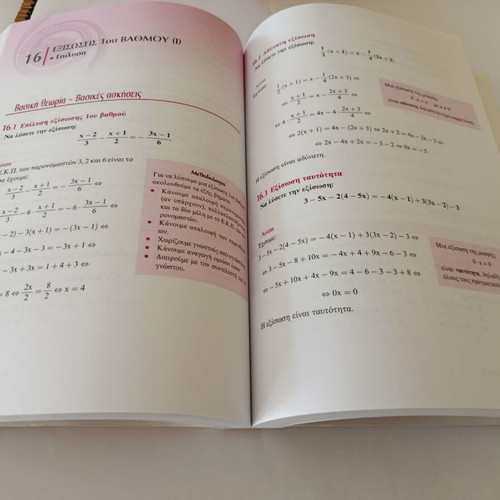 16 ΕΞΙΣΩΣΕΙΣ 1ου ΒΑΘΜΟΥ (Ι)
• Επίλυση
Βασική θεωρία – Βασικές ασκήσεις
16.1 Επίλυση εξίσωσης 1ου βαθμού
Να λύσετε την εξίσωση:
(x−2)/3 − (x+1)/2 = −(3x−1)/6
Ε.Κ.Π. των παρονομαστών 3, 2 και 6 είναι το
(x−2)/3 − (x+1)/2 = −(3x−1)/6 ⇔
(x−2)/3 − 6·(x+1)/2 = −6·(3x−1)/6 ⇔
−2) − 3(x+1) = −(3x−1) ⇔
− 4 − 3x − 3 = −3x + 1 ⇔
− 3x + 3x = 1 + 4 + 3 ⇔
= 8 ⇔ 2x/2 = 8/2 ⇔ x = 4
Μεθοδολογία
Για να λύσουμε μια εξίσωση
ακολουθούμε τα εξής βήματα
• Κάνουμε απαλοιφή
(αν υπάρχουν),
και τα δύο μέλη με το Ε.Κ.Π.
ρονομαστών.
• Κάνουμε απαλοιφή των παρενθέσε-
ων.
• Χωρίζουμε γνωστούς από
• Κάνουμε αναγωγή ομοίων
• Διαιρούμε με τον συντελεστή
γνώστου.
16.2 Αδύνατη εξίσωση
Να λύσετε την εξίσωση:
1/2 (x+1) = x − 1/4 (2x+3)
Λύση
Έχουμε:
1/2 (x+1) = x − 1/4 (2x+3) ⇔
⇔ (x+1)/2 = x − (2x+3)/4 ⇔
⇔ 4·(x+1)/2 = 4x − 4·(2x+3)/4 ⇔
⇔ 2(x+1) = 4x − (2x+3) ⇔ 2x+2 = 4x−2x−3 ⇔
⇔ 2x − 4x + 2x = −3 − 2 ⇔ 0x = −5
Η εξίσωση είναι αδύνατη.
Μια εξίσωση της μορφής:
16.3 Εξίσωση ταυτότητα
Να λύσετε την εξίσωση:
3 − 5x − 2(4 − 5x) = −4(x − 1) + 3(3x − 2) − 3
Λύση
Έχουμε:
3 − 5x − 2(4 − 5x) = −4(x − 1) + 3(3x − 2) − 3 ⇔
⇔ 3 − 5x − 8 + 10x = −4x + 4 + 9x − 6 − 3 ⇔
⇔ −5x + 10x + 4x − 9x = 4 − 6 − 3 − 3 + 8 ⇔
⇔ 0x = 0
Η εξίσωση είναι ταυτότητα.
Μια εξίσωση της μορφής:
0 · x = 0
είναι ταυτότητα, δηλαδή
όλους τους πραγματικούς